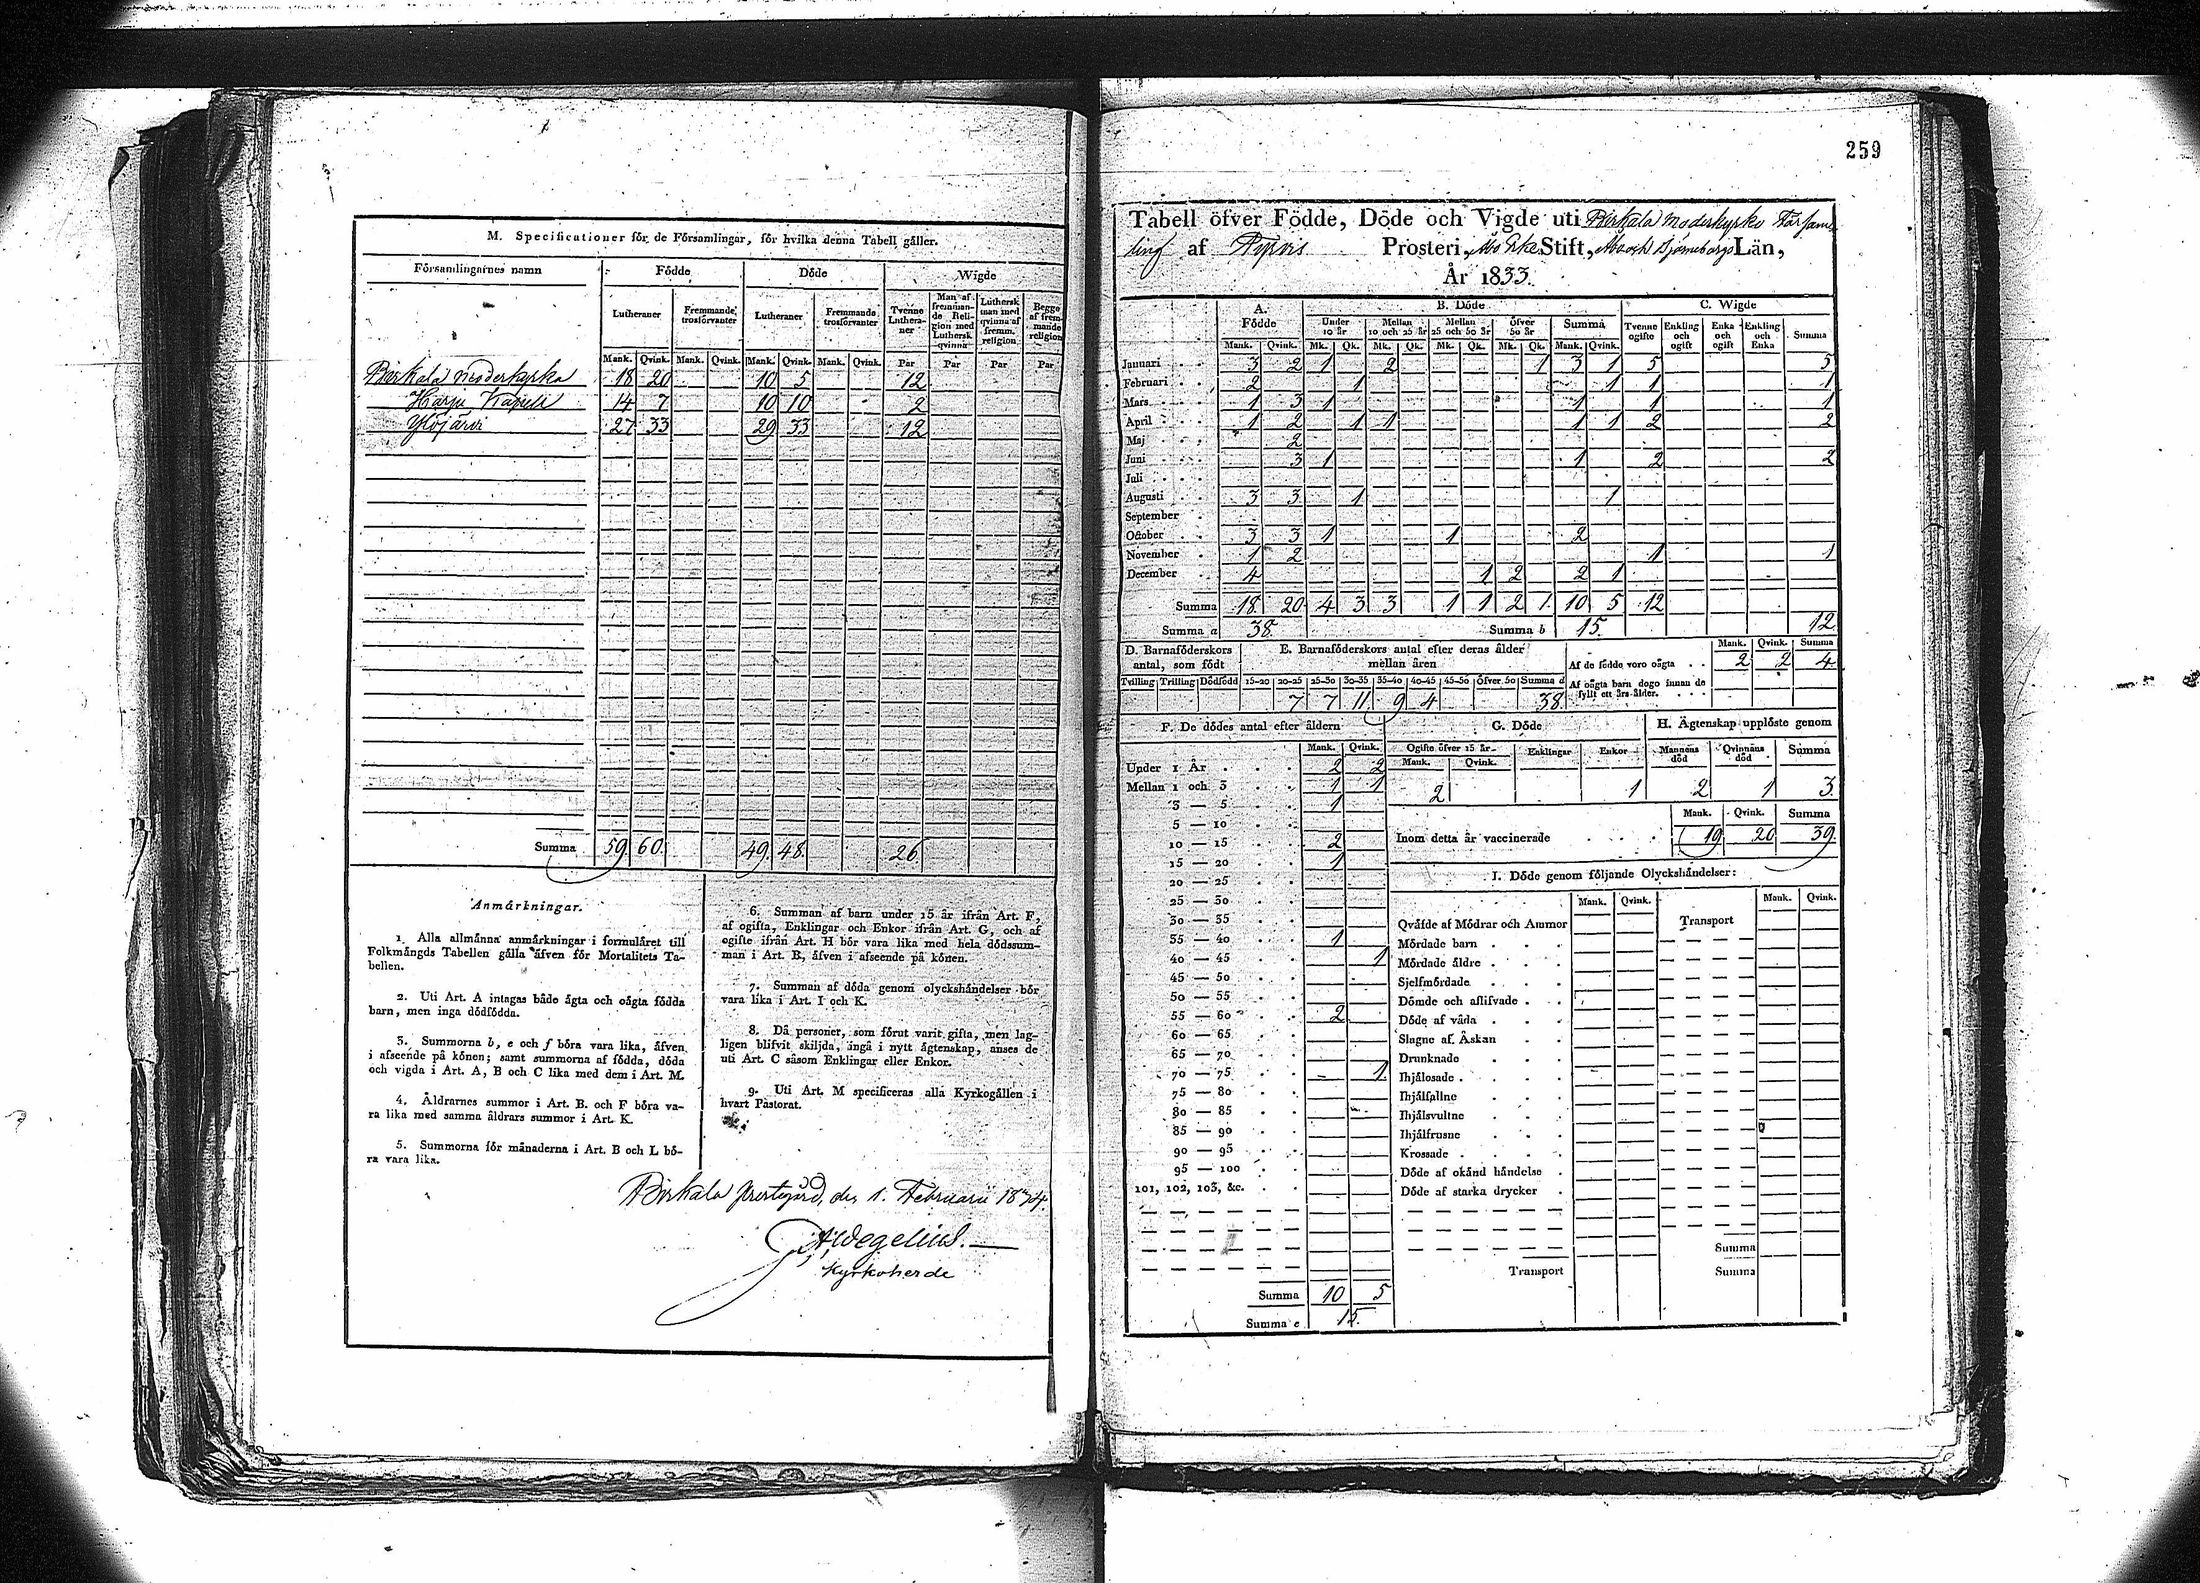 M. Specificationer för de Församlingar, för hvilka denna Tabell gäller.
Församlingarnes namn Födde Döde Wigde
Lutheraner Fremmande trosförvanter Lutheraner Fremmande trosförvanter Tvenne Lutheraner Man af fremmande Religion med Luthersk qvinna Luthersk man med qvinna af fremm. religion Begge af fremmande religion
Mank. Qvink. Mank. Qvink. Mank. Qvink. Mank. Qvink. Par Par Par Par
Birkala moderkyrka 18 20 10 5 12
Harju Kapell 14 7 10 10 2
Ylöjärvi 27 33 29 33 12
Summa 59 60 49. 48. 26
Anmärkningar.
1. Alla allmänna anmärkningar i formuläret till
Folkmängds Tabellen gälla äfven för Mortalitets Ta-
bellen.
2. Uti Art. A intagas både ägta och oägta födda
barn, men inga dödfödda.
3. Summorna b, e och f böra vara lika, äfven
i afseende på könen; samt summorna af födda, döda
och vigda i Art. A, B och C lika med dem i Art. M.
4. Åldrarnes summor i Art. B. och F böra va-
ra lika med samma åldrars summor i Art. K.
5. Summorna för månaderna i Art. B och L bö-
ra vara lika.
6. Summan af barn under 15 år ifrån Art. F,
af ogifta, Enklingar och Enkor ifrån Art. G, och af
ogifte ifrån Art. H bör vara lika med hela dödssum-
man i Art. B, äfven i afseende på könen.
7. Summan af döda genom olyckshändelser bör
vara lika i Art. I och K.
8. Då personer, som förut varit gifta, men lag-
ligen blifvit skiljda, ingå i nytt ägtenskap, anses de
uti Art. C såsom Enklingar eller Enkor.
9. Uti Art. M specificeras alla Kyrkogällen i
hvart Pastorat.
Birkala prestgård, den 1. Februarii 1834.
Wegelius.
Kyrkoherde
259
Tabell öfver Födde, Döde och Vigde uti Birkala Moderkyrko Församling
af Tyrvis Prosteri, Åbo Erke Stift, Åbo och Björneborgs Län,
År 1833.
A. Födde B. Döde C. Wigde
Under 10 år Mellan 10 och 25 år Mellan 25 och 50 år Öfver 50 år Summa Tvenne ogifte Enkling och ogift Enka och ogift Enkling och Enka Summa
Mank. Qvink. Mk. Qk. Mk. Qk. Mk. Qk. Mk. Qk. Mank. Qvink.
Januari 3 2 1 2 1 3 1 5 5
Februari 2 1 1 1 1
Mars 1 3 1 1 1 1
April 1 2 1 1 1 1 2 2
Maj 2
Juni 3 1 1 2 2
Juli
Augusti 3 3 1 1
September
October 3 3 1 1 2
November 1 2 1 1
December 4 1 2 2 1
Summa 18. 20 4 3 3 1 1 2 1. 10 5 12
Summa a 38. Summa b 15. 12
D. Barnaföderskors antal, som födt
Tvilling Trilling Dödfödd
E. Barnaföderskors antal efter deras ålder mellan åren
15-20 20-25 25-30 30-35 35-40 40-45 45-50 Öfver 50 Summa d
7 7 11 9 4 38
Mank. Qvink. Summa
Af de födde voro oägta 2 2 4
Af oägta barn dogo innan de
fyllt ett års ålder.
F. De dödes antal efter åldern
Mank. Qvink.
Under 1 År 2 2
Mellan 1 och 3 1 1
3 — 5 1
5 — 10
10 — 15 2
15 — 20 1
20 — 25
25 — 30
30 — 35
35 — 40 1
40 — 45 1
45 — 50
50 — 55
55 — 60 2
60 — 65
65 — 70
70 — 75 1
75 — 80
80 — 85
85 — 90
90 — 95
95 — 100
101, 102, 103, &c.
Summa 10 5
Summa e 15.
G. Döde
Ogifte öfver 15 år Enklingar Enkor
Mank. Qvink.
2 1
H. Ägtenskap upplöste genom
Mannens död Qvinnans död Summa
2 1 3
Mank. Qvink. Summa
Inom detta år vaccinerade 19 20 39.
I. Döde genom följande Olyckshändelser:
Mank. Qvink. Mank. Qvink.
Qväfde af Mödrar och Ammor Transport
Mördade barn
Mördade äldre
Sjelfmördade
Dömde och aflifvade
Döde af våda
Slagne af Åskan
Drunknade
Ihjälosade
Ihjälfallne
Ihjälsvultne
Ihjälfrusne
Krossade
Döde af okänd händelse
Döde af starka drycker
Summa
Transport Summa